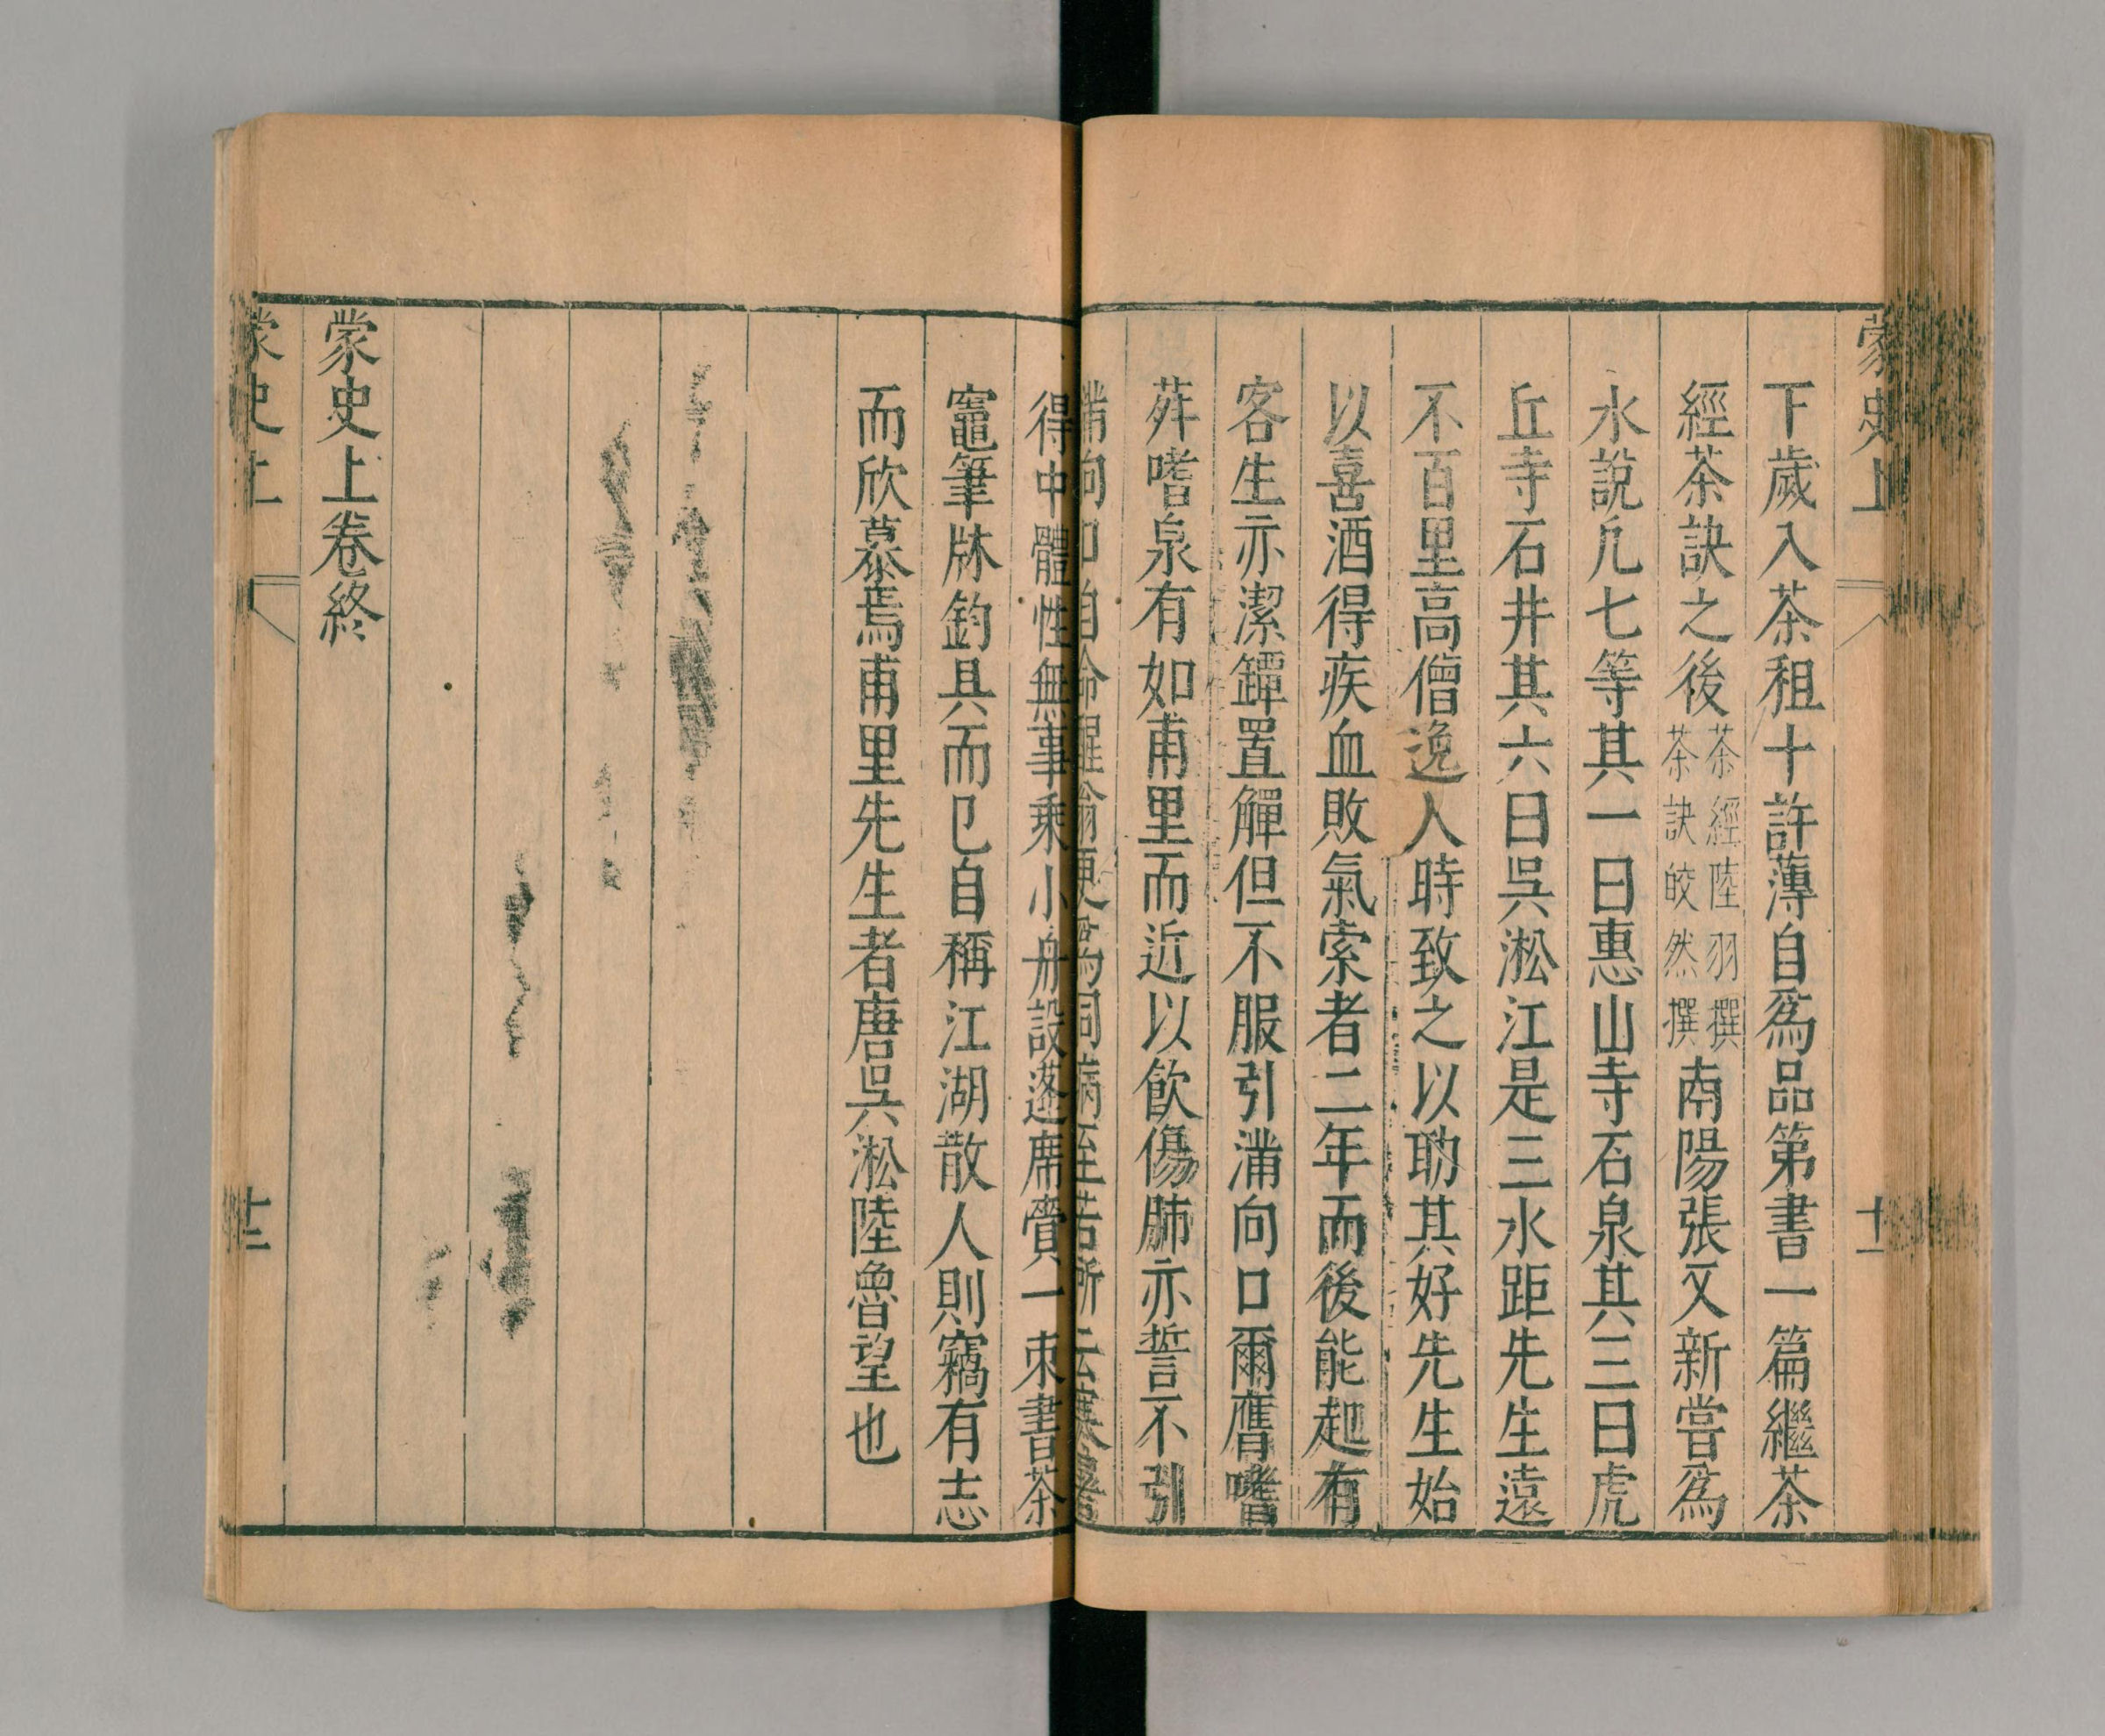 蒙史上
十一
下歲入茶租十許薄自爲品第書一篇繼茶
經茶訣之後茶經陸羽撰茶訣皎然撰南陽張又新嘗爲
水說凡七等其一曰惠山寺石泉其三曰虎
丘寺石井其六曰吳淞江是三水距先生遠
不百里高僧逸人時致之以助其好先生始
以喜酒得疾血敗氣索者二年而後能起有
客生亦潔罇置觶但不服引滿向口爾鷹嗜
荈嗜泉有如甫里而近以飲傷肺亦誓不引
滿向口自命醒翁更爲同病至若所云
得中體性無事乘小舟設蓬席賫一束書茶
竈筆牀釣具而已自稱江湖散人則竊有志
而欣慕焉甫里先生者唐吳淞陸魯望也
蒙史上卷終
蒙史上
十二